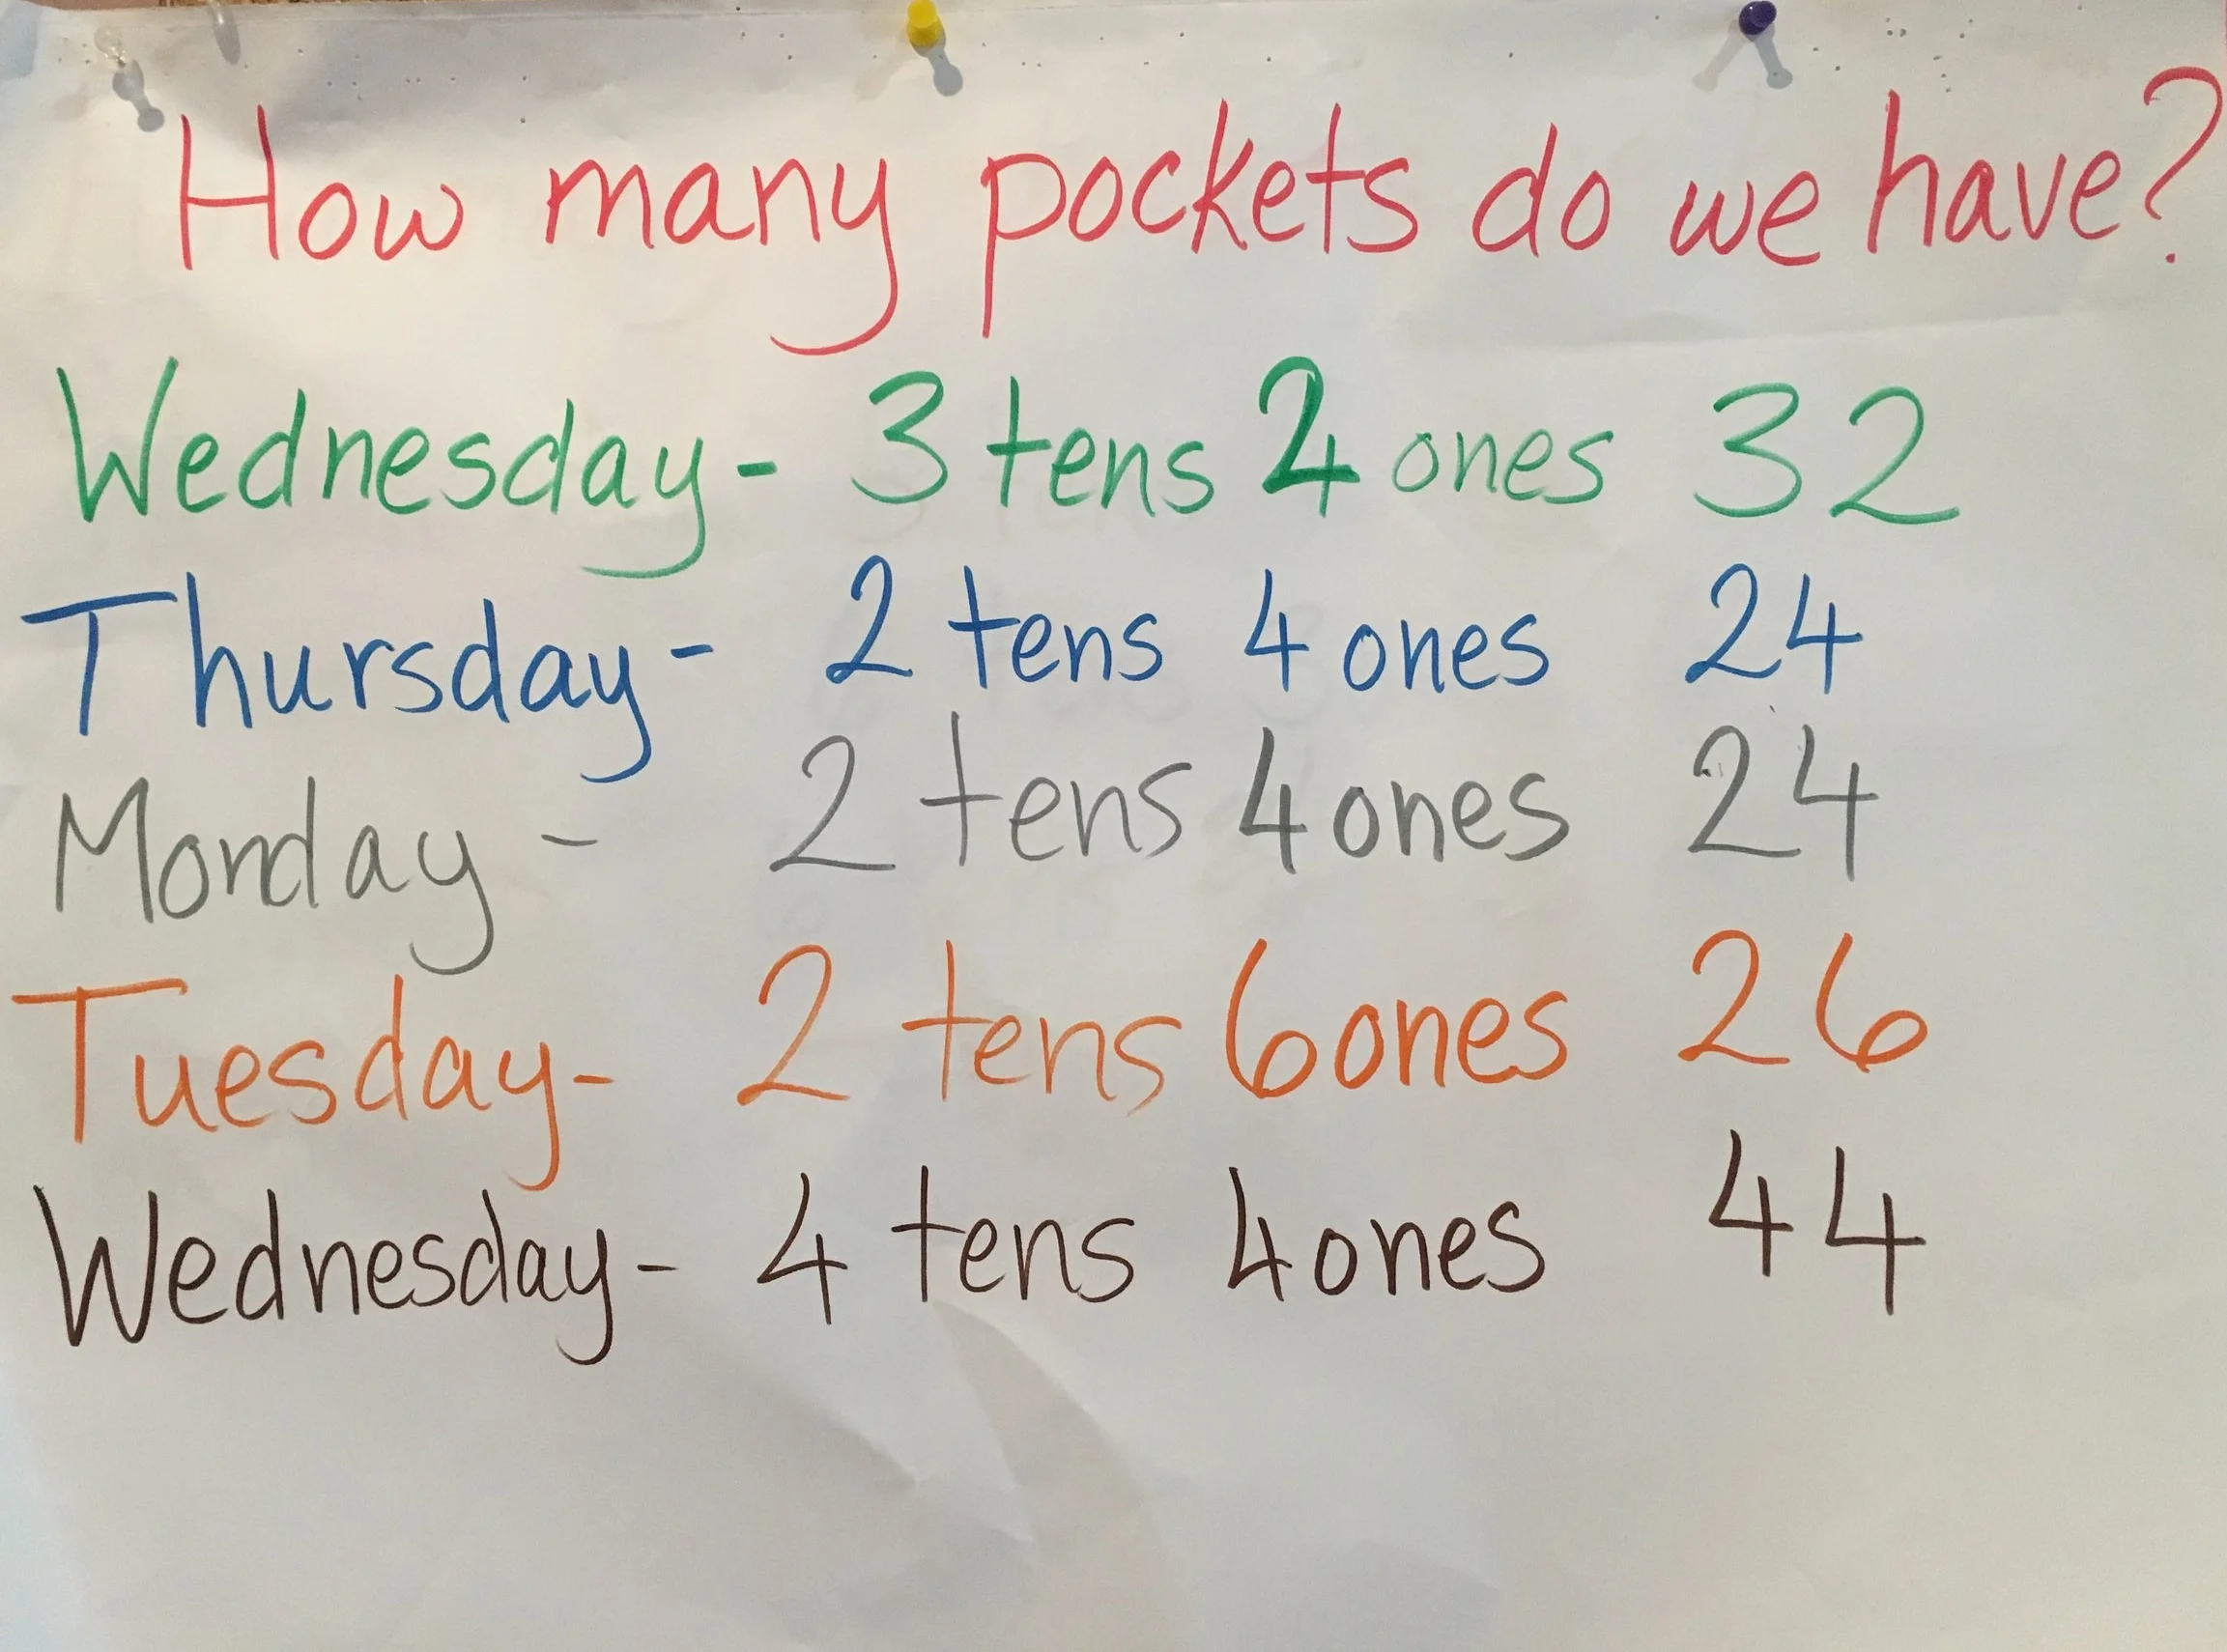 How many pockets do we have?
Wednesday - 3 tens 2 ones 32
Thursday - 2 tens 4 ones 24
Monday - 2 tens 4 ones 24
Tuesday - 2 tens 6 ones 26
Wednesday - 4 tens 4 ones 44